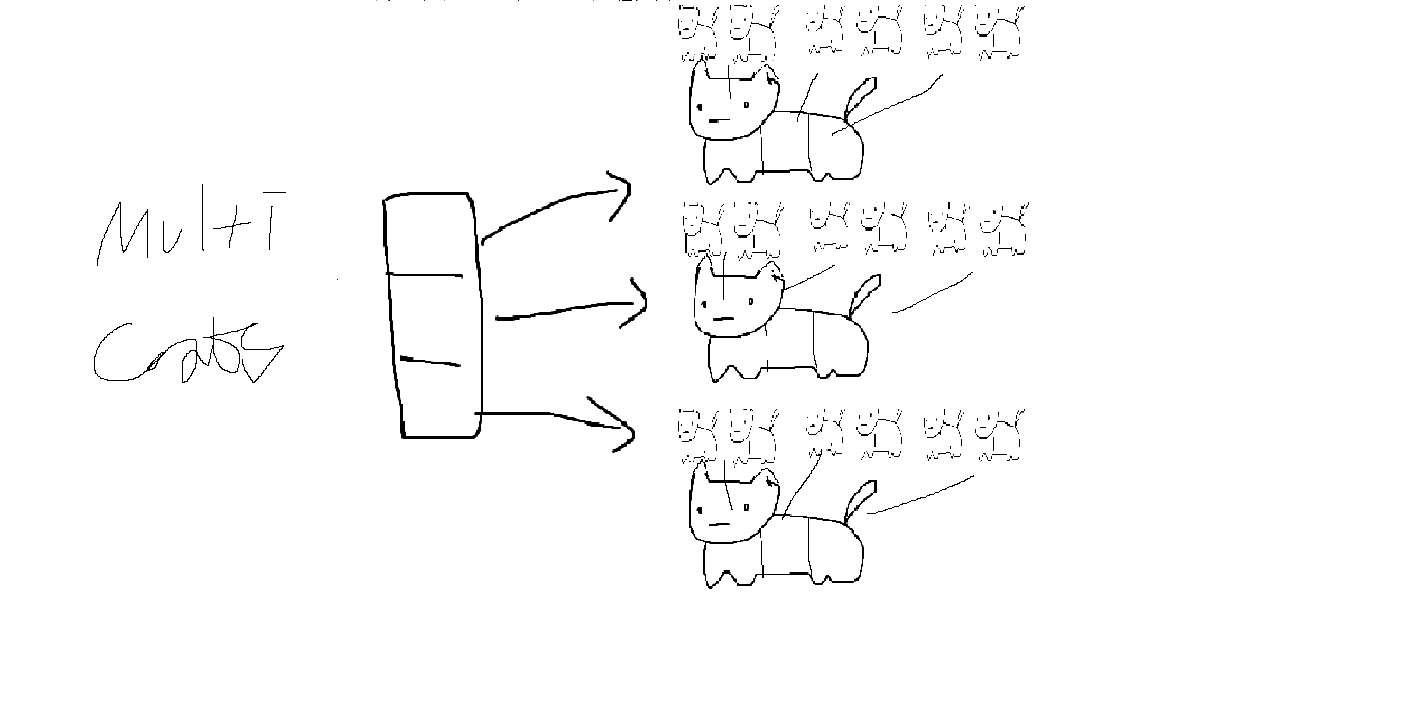 Multi
Cats